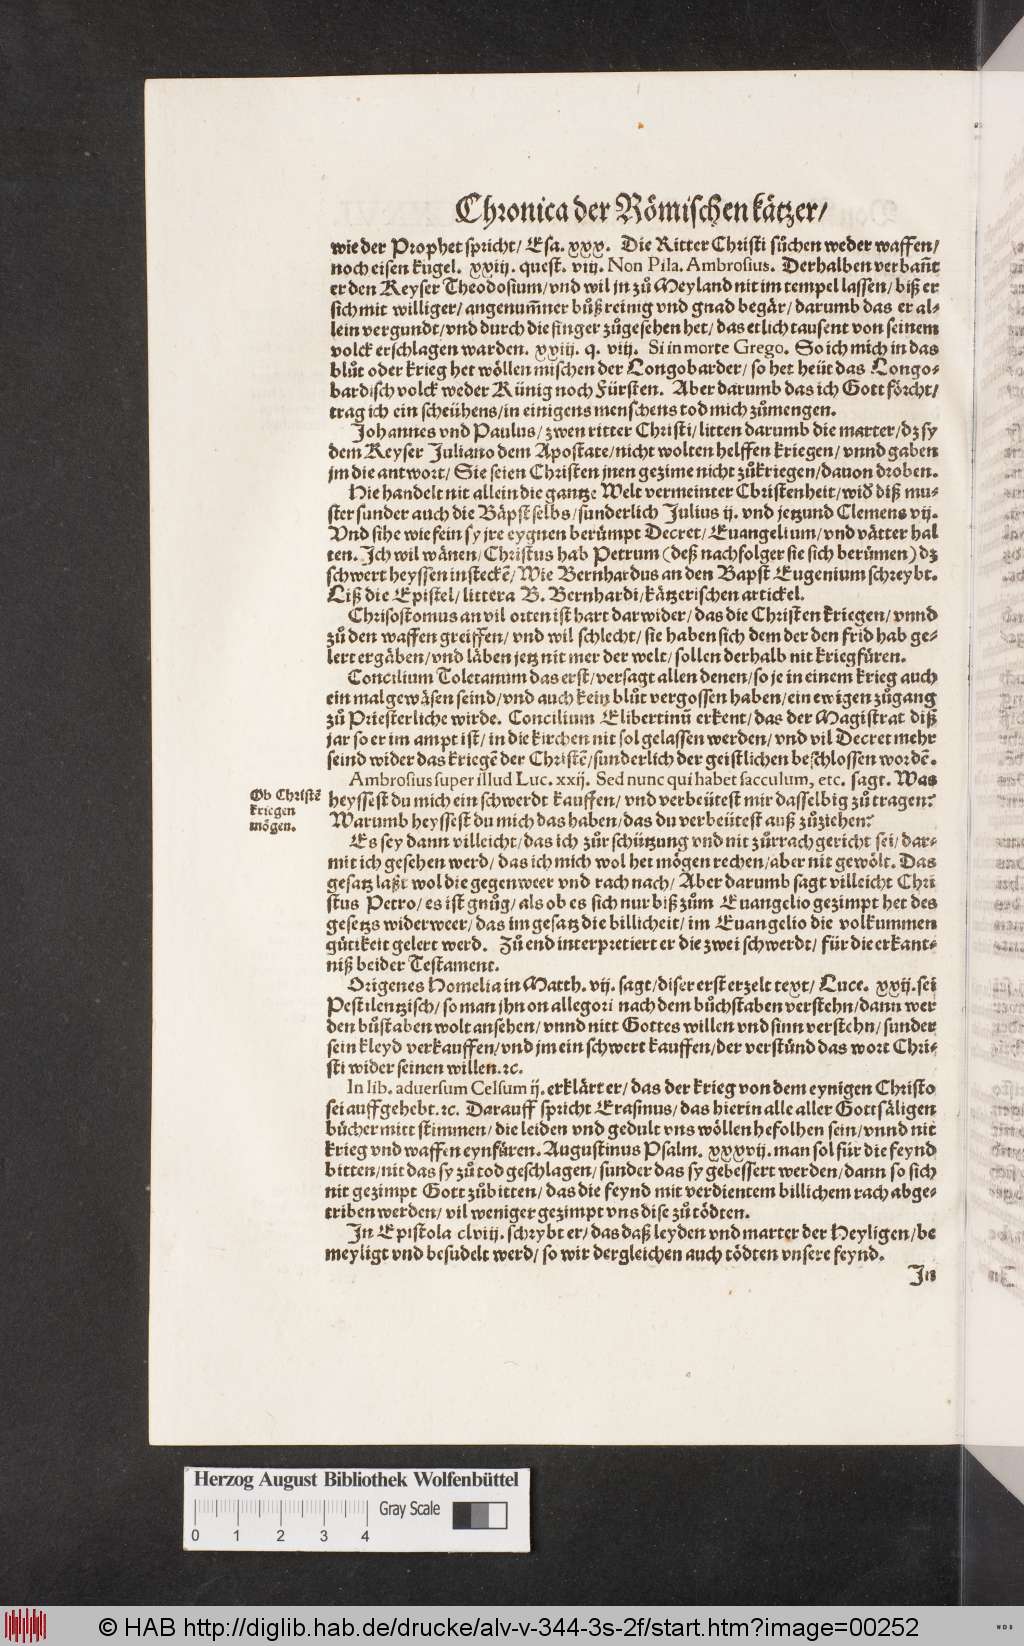 Chronica der Römischen kätzer/
wie der Prophet spricht/ Esa. xxx. Die Ritter Christi sůchen weder waffen/
noch eisen kugel. xxiij. quest. viij. Non Pila. Ambrosius. Derhalben verbañt
er den Keyser Theodosium/ vnd wil jn zů Meyland nit im tempel lassen/ biß er
sich mit williger/ angenum̃ner bůß reinig vnd gnad begär/ darumb das er al-
lein vergundt/ vnd durch die finger zůgesehen het/ das etlich tausent von seinem
volck erschlagen warden. xxiij. q. viij. Si in morte Grego. So ich mich in das
blůt oder krieg het wöllen mischen der Longobarder/ so het heüt das Longo-
bardisch volck weder Künig noch Fürsten. Aber darumb das ich Gott förcht/
trag ich ein scheühens/ in einigens menschens tod mich zůmengen.
Johannes vnd Paulus/ zwen ritter Christi/ litten darumb die marter/ dz sy
dem Keyser Juliano dem Apostate/ nicht wolten helffen kriegen/ vnnd gaben
jm die antwort/ Sie seien Christen jnen gezime nicht zůkriegen/ dauon droben.
Hie handelt nit allein die gantze Welt vermeinter Christenheit/ wid̃ diß mu-
ster sunder auch die Bäpst selbs/ sunderlich Julius ij. vnd jetzund Clemens vij.
Vnd sihe wie fein sy jre eygnen berümpt Decret/ Euangelium/ vnd vätter hal
ten. Ich wil wänen/ Christus hab Petrum (deß nachfolger sie sich berümen) dz
schwert heyssen insteckẽ/ Wie Bernhardus an den Bapst Eugenium schreybt.
Liß die Epistel/ littera B. Bernhardi/ kätzerischen artickel.
Chrisostomus an vil orten ist hart darwider/ das die Christen kriegen/ vnnd
zů den waffen greiffen/ vnd wil schlecht/ sie haben sich dem der den frid hab ge-
lert ergäben/ vnd läben jetz nit mer der welt/ sollen derhalb nit kriegfüren.
Concilium Toletanum das erst/ versagt allen denen/ so je in einem krieg auch
ein mal gewäsen seind/ vnd auch kein blůt vergossen haben/ ein ewigen zůgang
zů Priesterliche wirde. Concilium Elibertinũ erkent/ das der Magistrat diß
jar so er im ampt ist/ in die kirchen nit sol gelassen werden/ vnd vil Decret mehr
seind wider das kriegẽ der Christẽ/ sunderlich der geistlichen beschlossen wordẽ.
Ob Christẽ
kriegen
mögen.
Ambrosius super illud Luc. xxij. Sed nunc qui habet sacculum, etc. sagt. Was
heyssest du mich ein schwerdt kauffen/ vnd verbeütest mir dasselbig zů tragen?
Warumb heyssest du mich das haben/ das du verbeütest auß zůziehen?
Es sey dann villeicht/ das ich zůr schützung vnd nit zůr rach gericht sei/ dar-
mit ich gesehen werd/ das ich mich wol het mögen rechen/ aber nit gewölt. Das
gesatz laßt wol die gegenweer vnd rach nach/ Aber darumb sagt villeicht Chri
stus Petro/ es ist gnůg/ als ob es sich nur biß zům Euangelio gezimpt het des
gesetzs widerweer/ das im gesatz die billicheit/ im Euangelio die volkummen
gůtikeit gelert werd. Zů end interpretiert er die zwei schwerdt/ für die erkant-
niß beider Testament.
Origenes Homelia in Matth. vij. sagt/ diser erst erzelt text/ Luce. xxij. sei
Pestilentzisch/ so man jhn on allegori nach dem bůchstaben verstehn/ dann wer
den bůstaben wolt ansehen/ vnnd nitt Gottes willen vnd sinn verstehn/ sunder
sein kleyd verkauffen/ vnd jm ein schwert kauffen/ der verstünd das wort Chri-
sti wider seinen willen. ꝛc.
In lib. aduersum Celsum ij. erklärt er/ das der krieg von dem eynigen Christo
sei auffgehebt. ꝛc. Darauff spricht Erasmus/ das hierin alle aller Gottsäligen
bücher mitt stimmen/ die leiden vnd gedult vns wöllen befolhen sein/ vnnd nit
krieg vnd waffen eynfüren. Augustinus Psalm. xxxvij. man sol für die feynd
bitten/ nit das sy zů tod geschlagen/ sunder das sy gebessert werden/ dann so sich
nit gezimpt Gott zůbitten/ das die feynd mit verdientem billichem rach abge-
triben werden/ vil weniger gezimpt vns dise zů tödten.
In Epistola clviij. schrybt er/ das daß leyden vnd marter der Heyligen/ be
meyligt vnd besudelt werd/ so wir dergleichen auch tödten vnsere feynd.
In
Herzog August Bibliothek Wolfenbüttel
Gray Scale
0 1 2 3 4
© HAB http://diglib.hab.de/drucke/alv-v-344-3s-2f/start.htm?image=00252